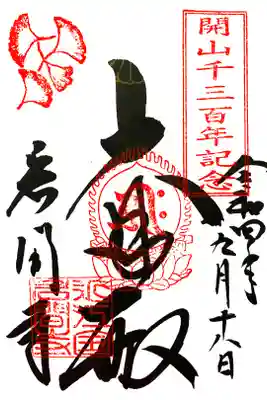 開山千三百年記念
令和四年
九月十八日
大悲殿
岩間寺